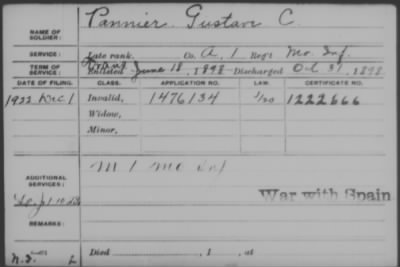 NAME OF SOLDIER: Pannier Gustave C.
SERVICE: Late rank, Co. A, 1 Reg't Mo. Inf.
TERM OF SERVICE: Enlisted June 18, 1898 Discharged Oct 31, 1898
DATE OF FILING. CLASS. APPLICATION NO. LAW. CERTIFICATE NO.
1922 Dec 1 Invalid, 1476134 1222666
Widow,
Minor,
ADDITIONAL SERVICES: M 1 Mo Inf
War with Spain
REMARKS:
Died , 1 , at